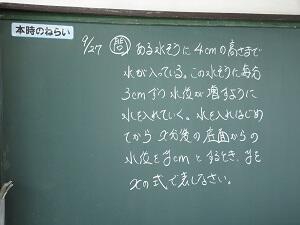 本時のねらい
9/27 問 ある水そうに4cmの高さまで
水が入っている。この水そうに毎分
3cmずつ水位が増すように
水を入れていく。水を入れはじめ
てからx分後の底面からの
水位をycmとするとき、yを
xの式で表しなさい。